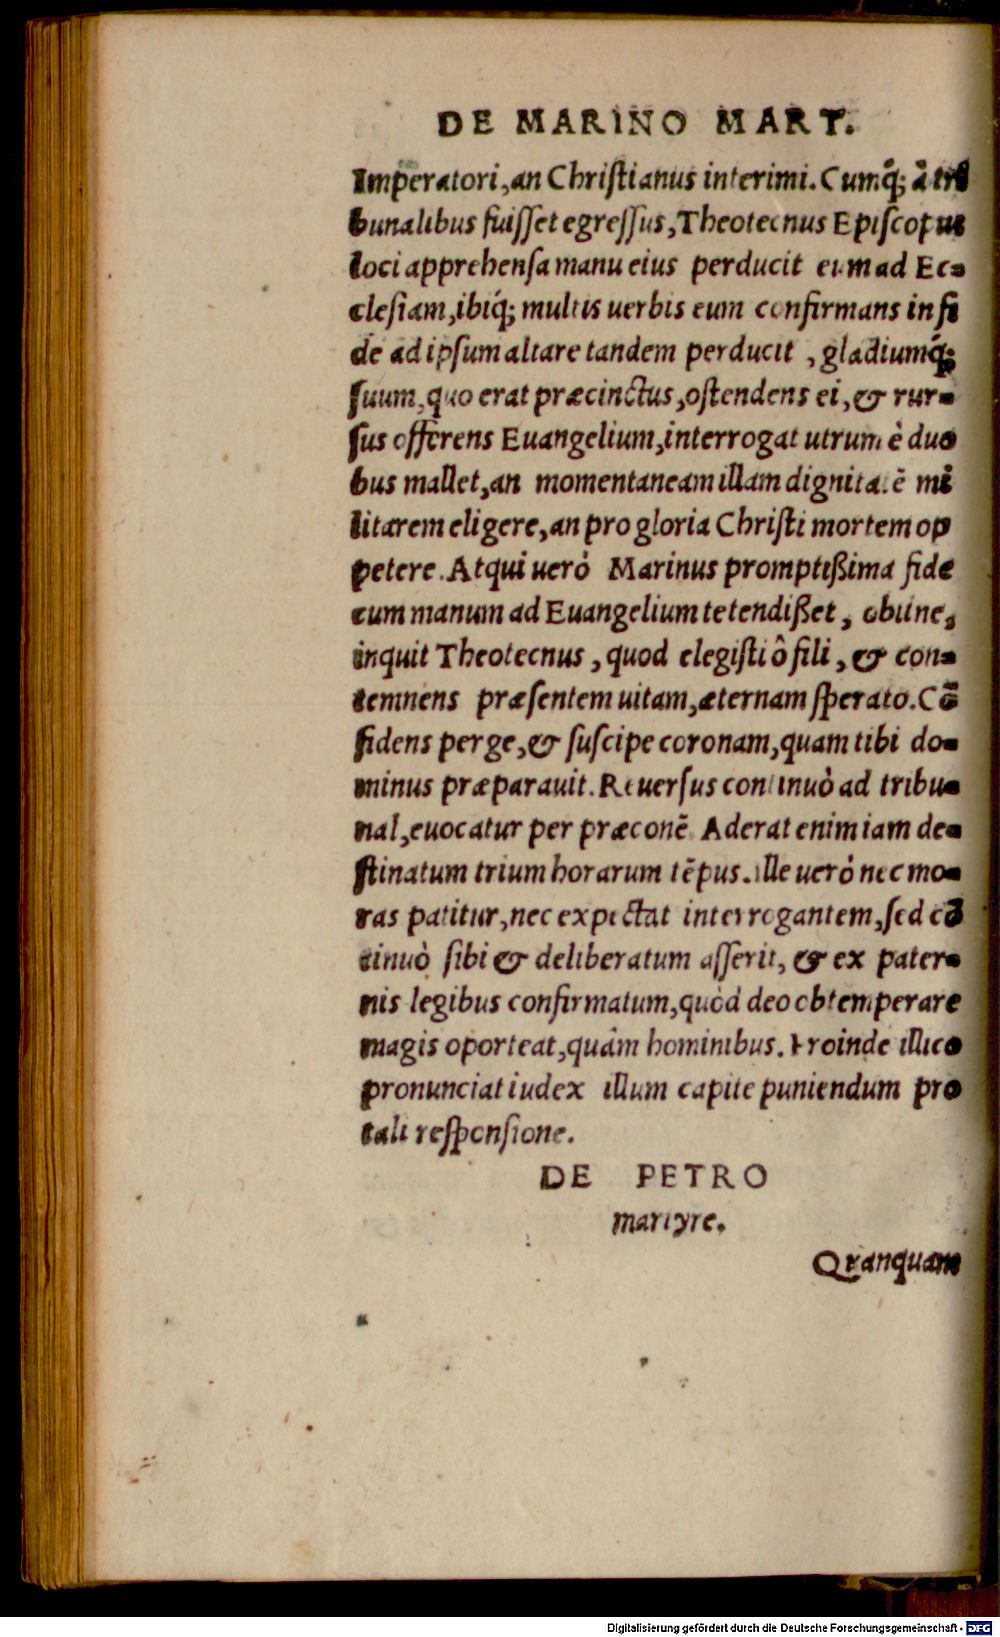 DE MARINO MART.
Imperatori, an Christianus interimi. Cumq́; à tri
bunalibus fuisset egressus, Theotecnus Episcopus
loci apprehensa manu eius perducit eum ad Ec-
clesiam, ibiq́; multis uerbis eum confirmans in fi
de ad ipsum altare tandem perducit, gladiumq́;
suum, quo erat præcinctus, ostendens ei, & rur-
sus offerens Euangelium, interrogat utrum è duo
bus mallet, an momentaneam illam dignitatē mi
litarem eligere, an pro gloria Christi mortem op
petere. Atqui uerò Marinus promptißima fide
cum manum ad Euangelium tetendißet, obtine,
inquit Theotecnus, quod elegisti ô fili, & con-
temnens præsentem uitam, æternam sperato. Cō
fidens perge, & suscipe coronam, quam tibi do-
minus præparauit. Reuersus continuò ad tribu-
nal, euocatur per præconē. Aderat enim iam de-
stinatum trium horarum tēpus. ille uerò nec mo-
ras patitur, nec expectat interrogantem, sed cō
tinuò sibi & deliberatum asserit, & ex pater-
nis legibus confirmatum, quòd deo obtemperare
magis oporteat, quàm hominibus. Proinde illico
pronunciat iudex illum capite puniendum pro
tali responsione.
DE PETRO
martyre.
Quanquam
Digitalisierung gefördert durch die Deutsche Forschungsgemeinschaft - DFG